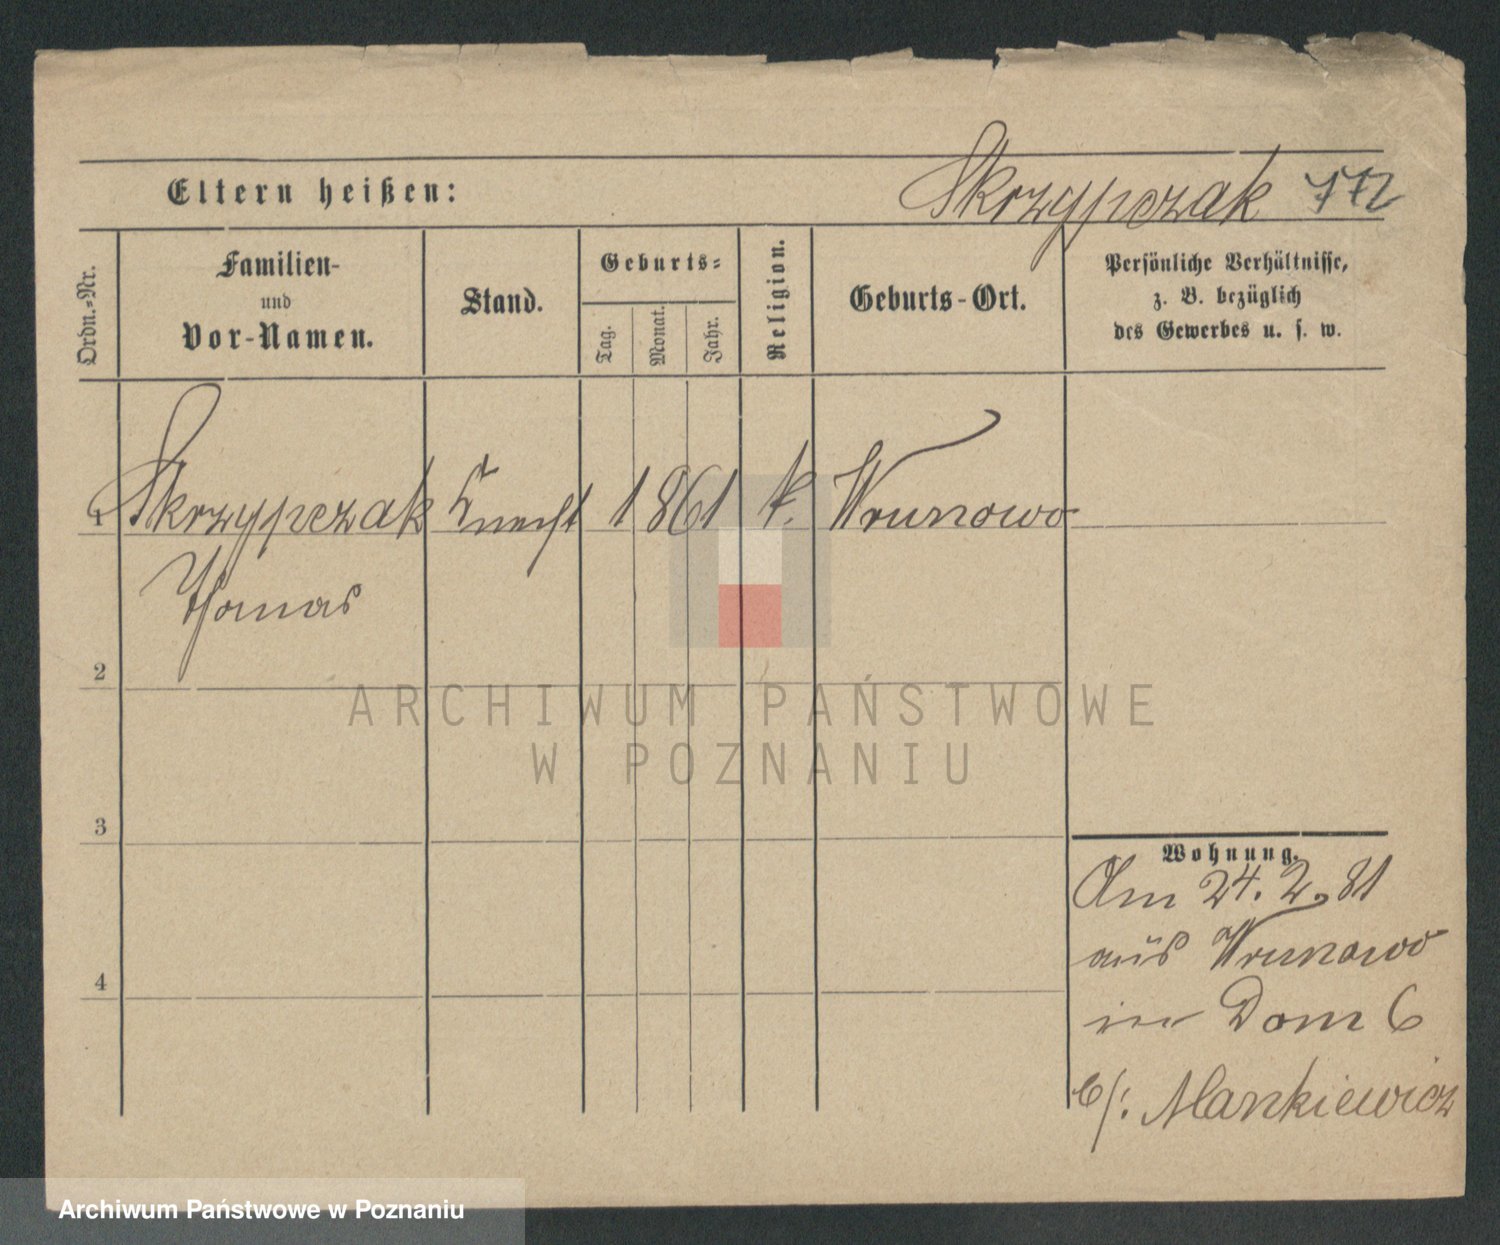 Eltern heißen:
Skrzypczak 772
Ordn.-Nr.
Familien-
und
Vor-Namen.
Stand.
Geburts-
Tag.
Monat.
Jahr.
Religion.
Geburts-Ort.
Persönliche Verhältnisse,
z. B. bezüglich
des Gewerbes u. s. w.
1 Skrzypczak Knecht 1861 k. Wrunowo
Thomas
2
3
4
ARCHIWUM PAŃSTWOWE
W POZNANIU
Wohnung.
Am 24.2.81
aus Wrunowo
in Dom 6
b/: Mankiewicz
Archiwum Państwowe w Poznaniu